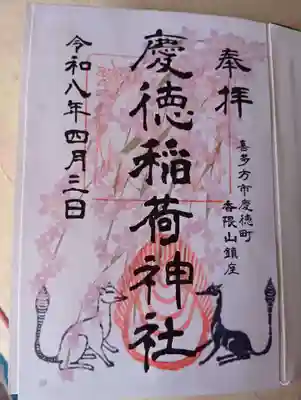 奉拝
喜多方市慶徳町
香隈山鎮座
慶徳稲荷神社
令和八年四月三日